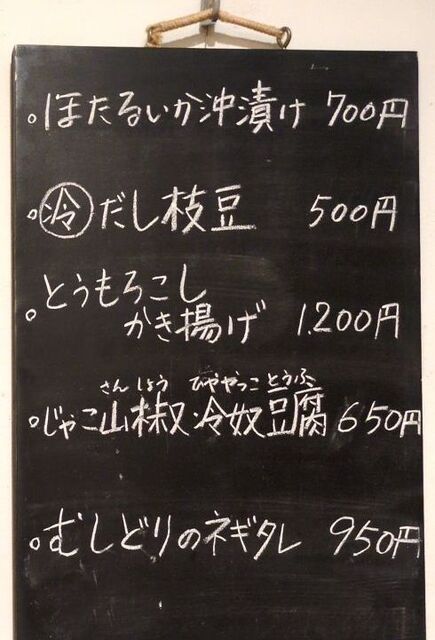 。ほたるいか沖漬け 700円
。㊗冷だし枝豆 500円
。とうもろこし
かき揚げ 1.200円
さんしょう ひややっこ とうふ
。じゃこ山椒・冷奴豆腐 650円
。むしどりのネギタレ 950円